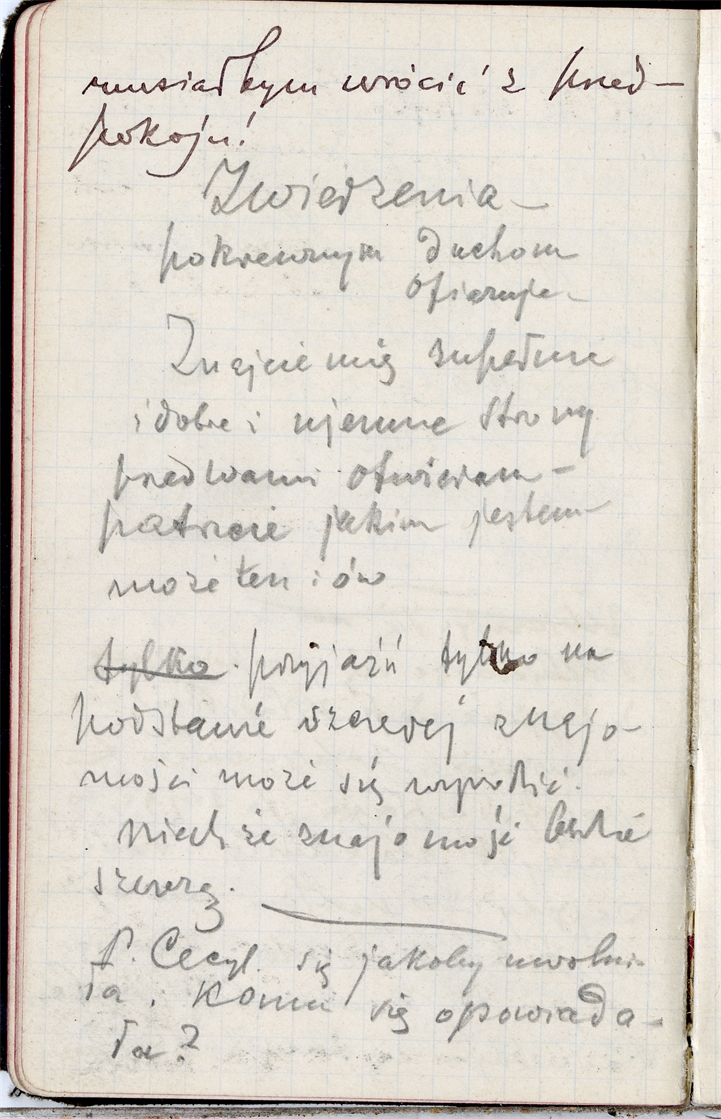 musiałbym wrócić z przed-
pokoju!
Zwierzenia –
pokrewnym duchom
ofiaruję –
Znajcie mię zupełnie
i dobre i ujemne strony
przed wami otwieram –
patrzcie jakim jestem –
może ten i ów
tylko przyjaźń tylko na
podstawie szczerej znajo-
mości może się wyrodzić.
Niech że znajomość będzie
szczerą.
P. Cecyl. się jakoby uwolni-
ła. Komu się opowiada-
ła?